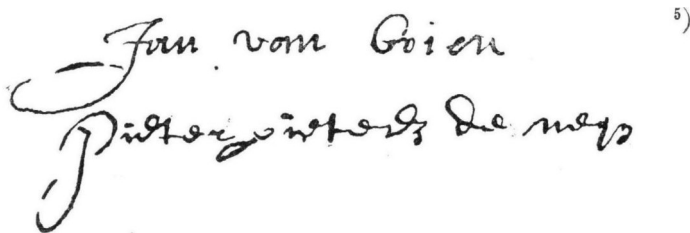 Jan van Goien 5)
Pieter pieterz de neyn